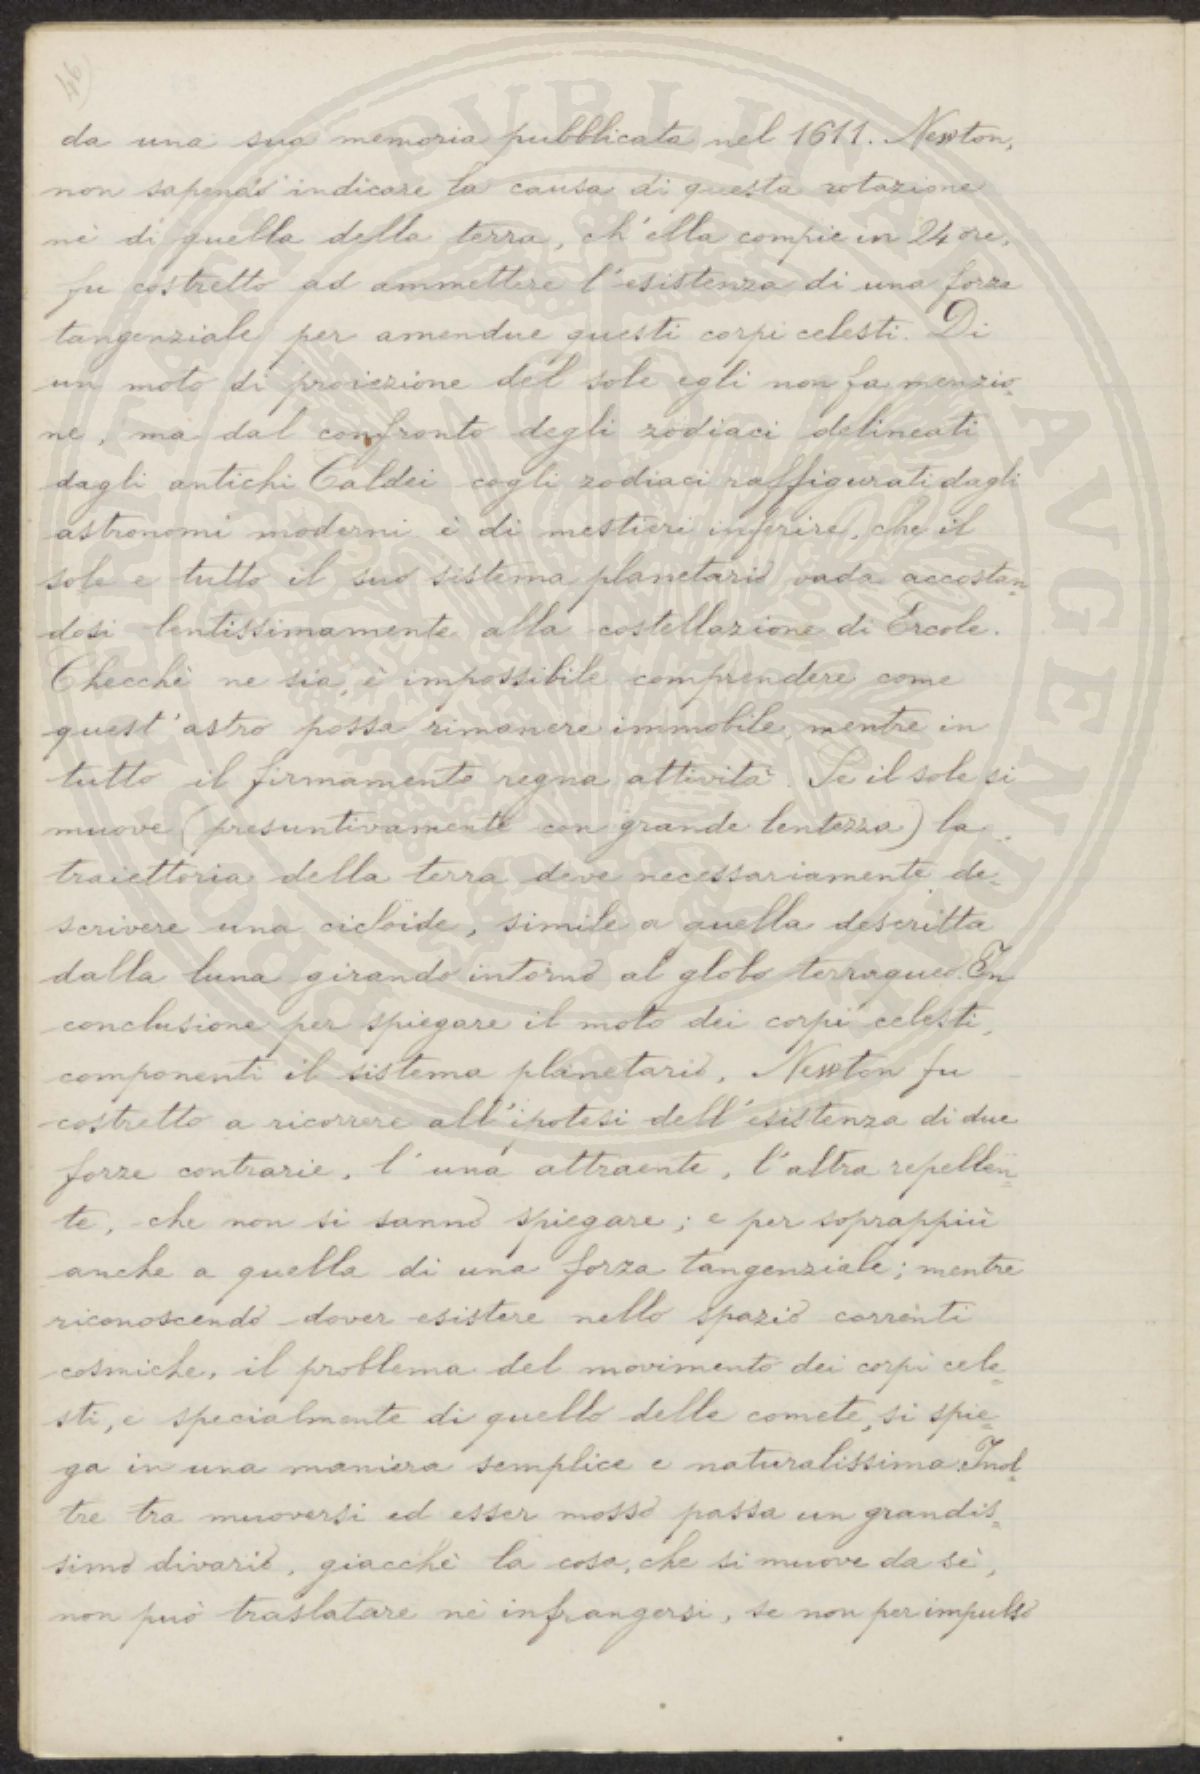 46)
da una sua memoria pubblicata nel 1611. Newton,
non sapendo indicare la causa di questa rotazione
nè di quella della terra, ch'ella compie in 24 ore,
fu costretto ad ammettere l'esistenza di una forza
tangenziale per amendue questi corpi celesti. Di
un moto di proiezione del sole egli non fa menzio-
ne, ma dal confronto degli zodiaci delineati
dagli antichi Caldei cogli zodiaci raffigurati dagli
astronomi moderni è di mestieri inferire, che il
sole e tutto il suo sistema planetario vada accostan-
dosi lentissimamente alla costellazione di Ercole.
Checchè ne sia, è impossibile comprendere come
quest'astro possa rimanere immobile, mentre in
tutto il firmamento regna attività. Se il sole si
muove (presuntivamente con grande lentezza) la
traiettoria della terra deve necessariamente de-
scrivere una cicloide, simile a quella descritta
dalla luna girando intorno al globo terraqueo. In
conclusione per spiegare il moto dei corpi celesti,
componenti il sistema planetario, Newton fu
costretto a ricorrere all'ipotesi dell'esistenza di due
forze contrarie, l'una attraente, l'altra repellen-
te, che non si sanno spiegare; e per soprappiù
anche a quella di una forza tangenziale; mentre
riconoscendo dover esistere nello spazio correnti
cosmiche, il problema del movimento dei corpi cele-
sti, e specialmente di quello delle comete, si spie-
ga in una maniera semplice e naturalissima. Inol-
tre tra muoversi ed esser mosso passa un grandis-
simo divario, giacchè la cosa, che si muove da sè,
non può traslatare nè infrangersi, se non per impulso